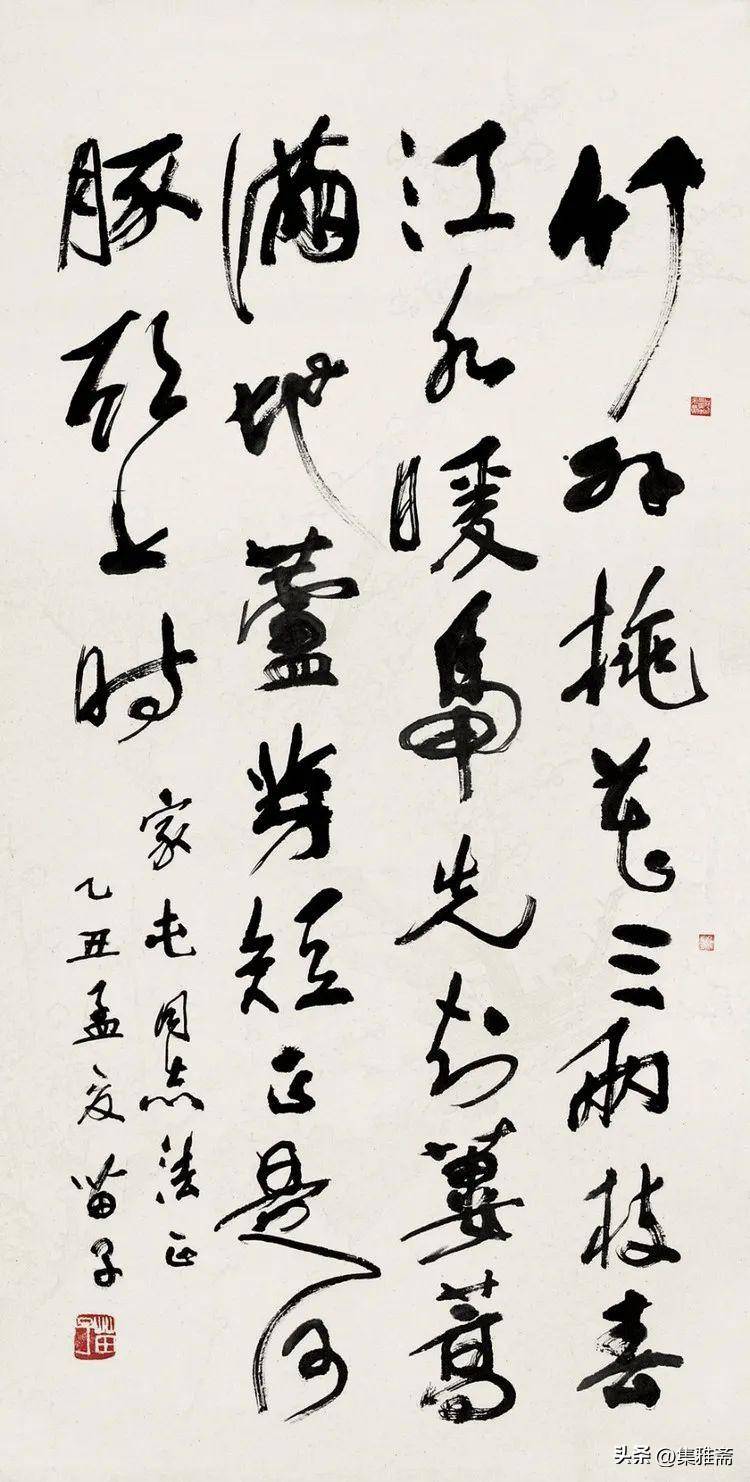 竹外桃花三兩枝春
江水暖鴨先知蔞蒿
滿地蘆芽短正是河
豚欲上時
家屯同志法正
乙丑孟夏苗子
苗子
头条 @集雅斋